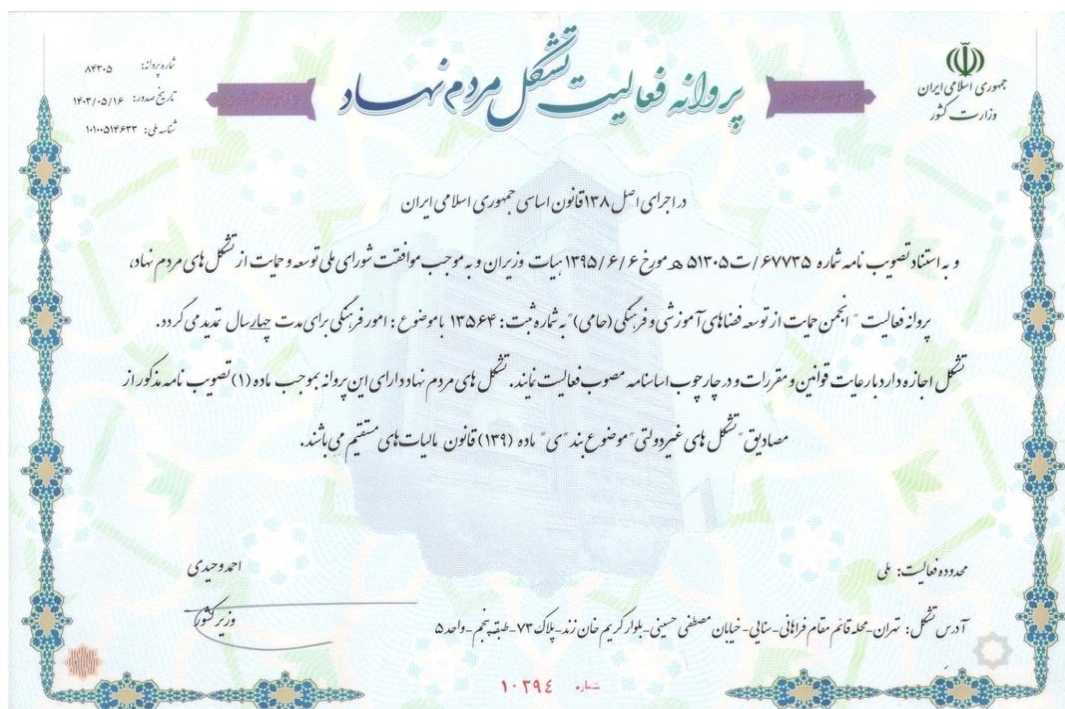 جمهوری اسلامی ایران
وزارت کشور
پروانه فعالیت تشکل مردم نهاد
شماره پروانه: ۸۴۳۰۵
تاریخ صدور: ۱۴۰۳/۰۵/۱۶
شناسه ملی: ۱۰۱۰۰۵۱۴۶۳۳
در اجرای اصل ۱۳۸ قانون اساسی جمهوری اسلامی ایران
و به استناد تصویب نامه شماره ۶۷۷۳۵/ت۵۱۳۰۵ هـ مورخ ۱۳۹۵/۶/۶ هیات وزیران و به موجب موافقت شورای ملی توسعه و حمایت از تشکل های مردم نهاد،
پروانه فعالیت " انجمن حمایت از توسعه فضاهای آموزشی و فرهنگی (حامی)" به شماره ثبت: ۱۳۵۶۴ با موضوع: امور فرهنگی برای مدت چهارسال تمدید می گردد.
تشکل اجازه دارد با رعایت قوانین و مقررات و در چارچوب اساسنامه مصوب فعالیت نمایند. تشکل های مردم نهاد دارای این پروانه بموجب ماده (۱) تصویب نامه مذکور از
مصادیق "تشکل های غیردولتی" موضوع بند "ی" ماده (۱۳۹) قانون مالیات های مستقیم می باشند.
محدوده فعالیت: ملی
احمد وحیدی
وزیر کشور
آدرس تشکل: تهران-محله قائم مقام فراهانی-سنایی-خیابان مصطفی حسینی-بلوار کریم خان زند-پلاک ۷۳-طبقه پنجم-واحد ۵
شماره ۱۰۲۹۴